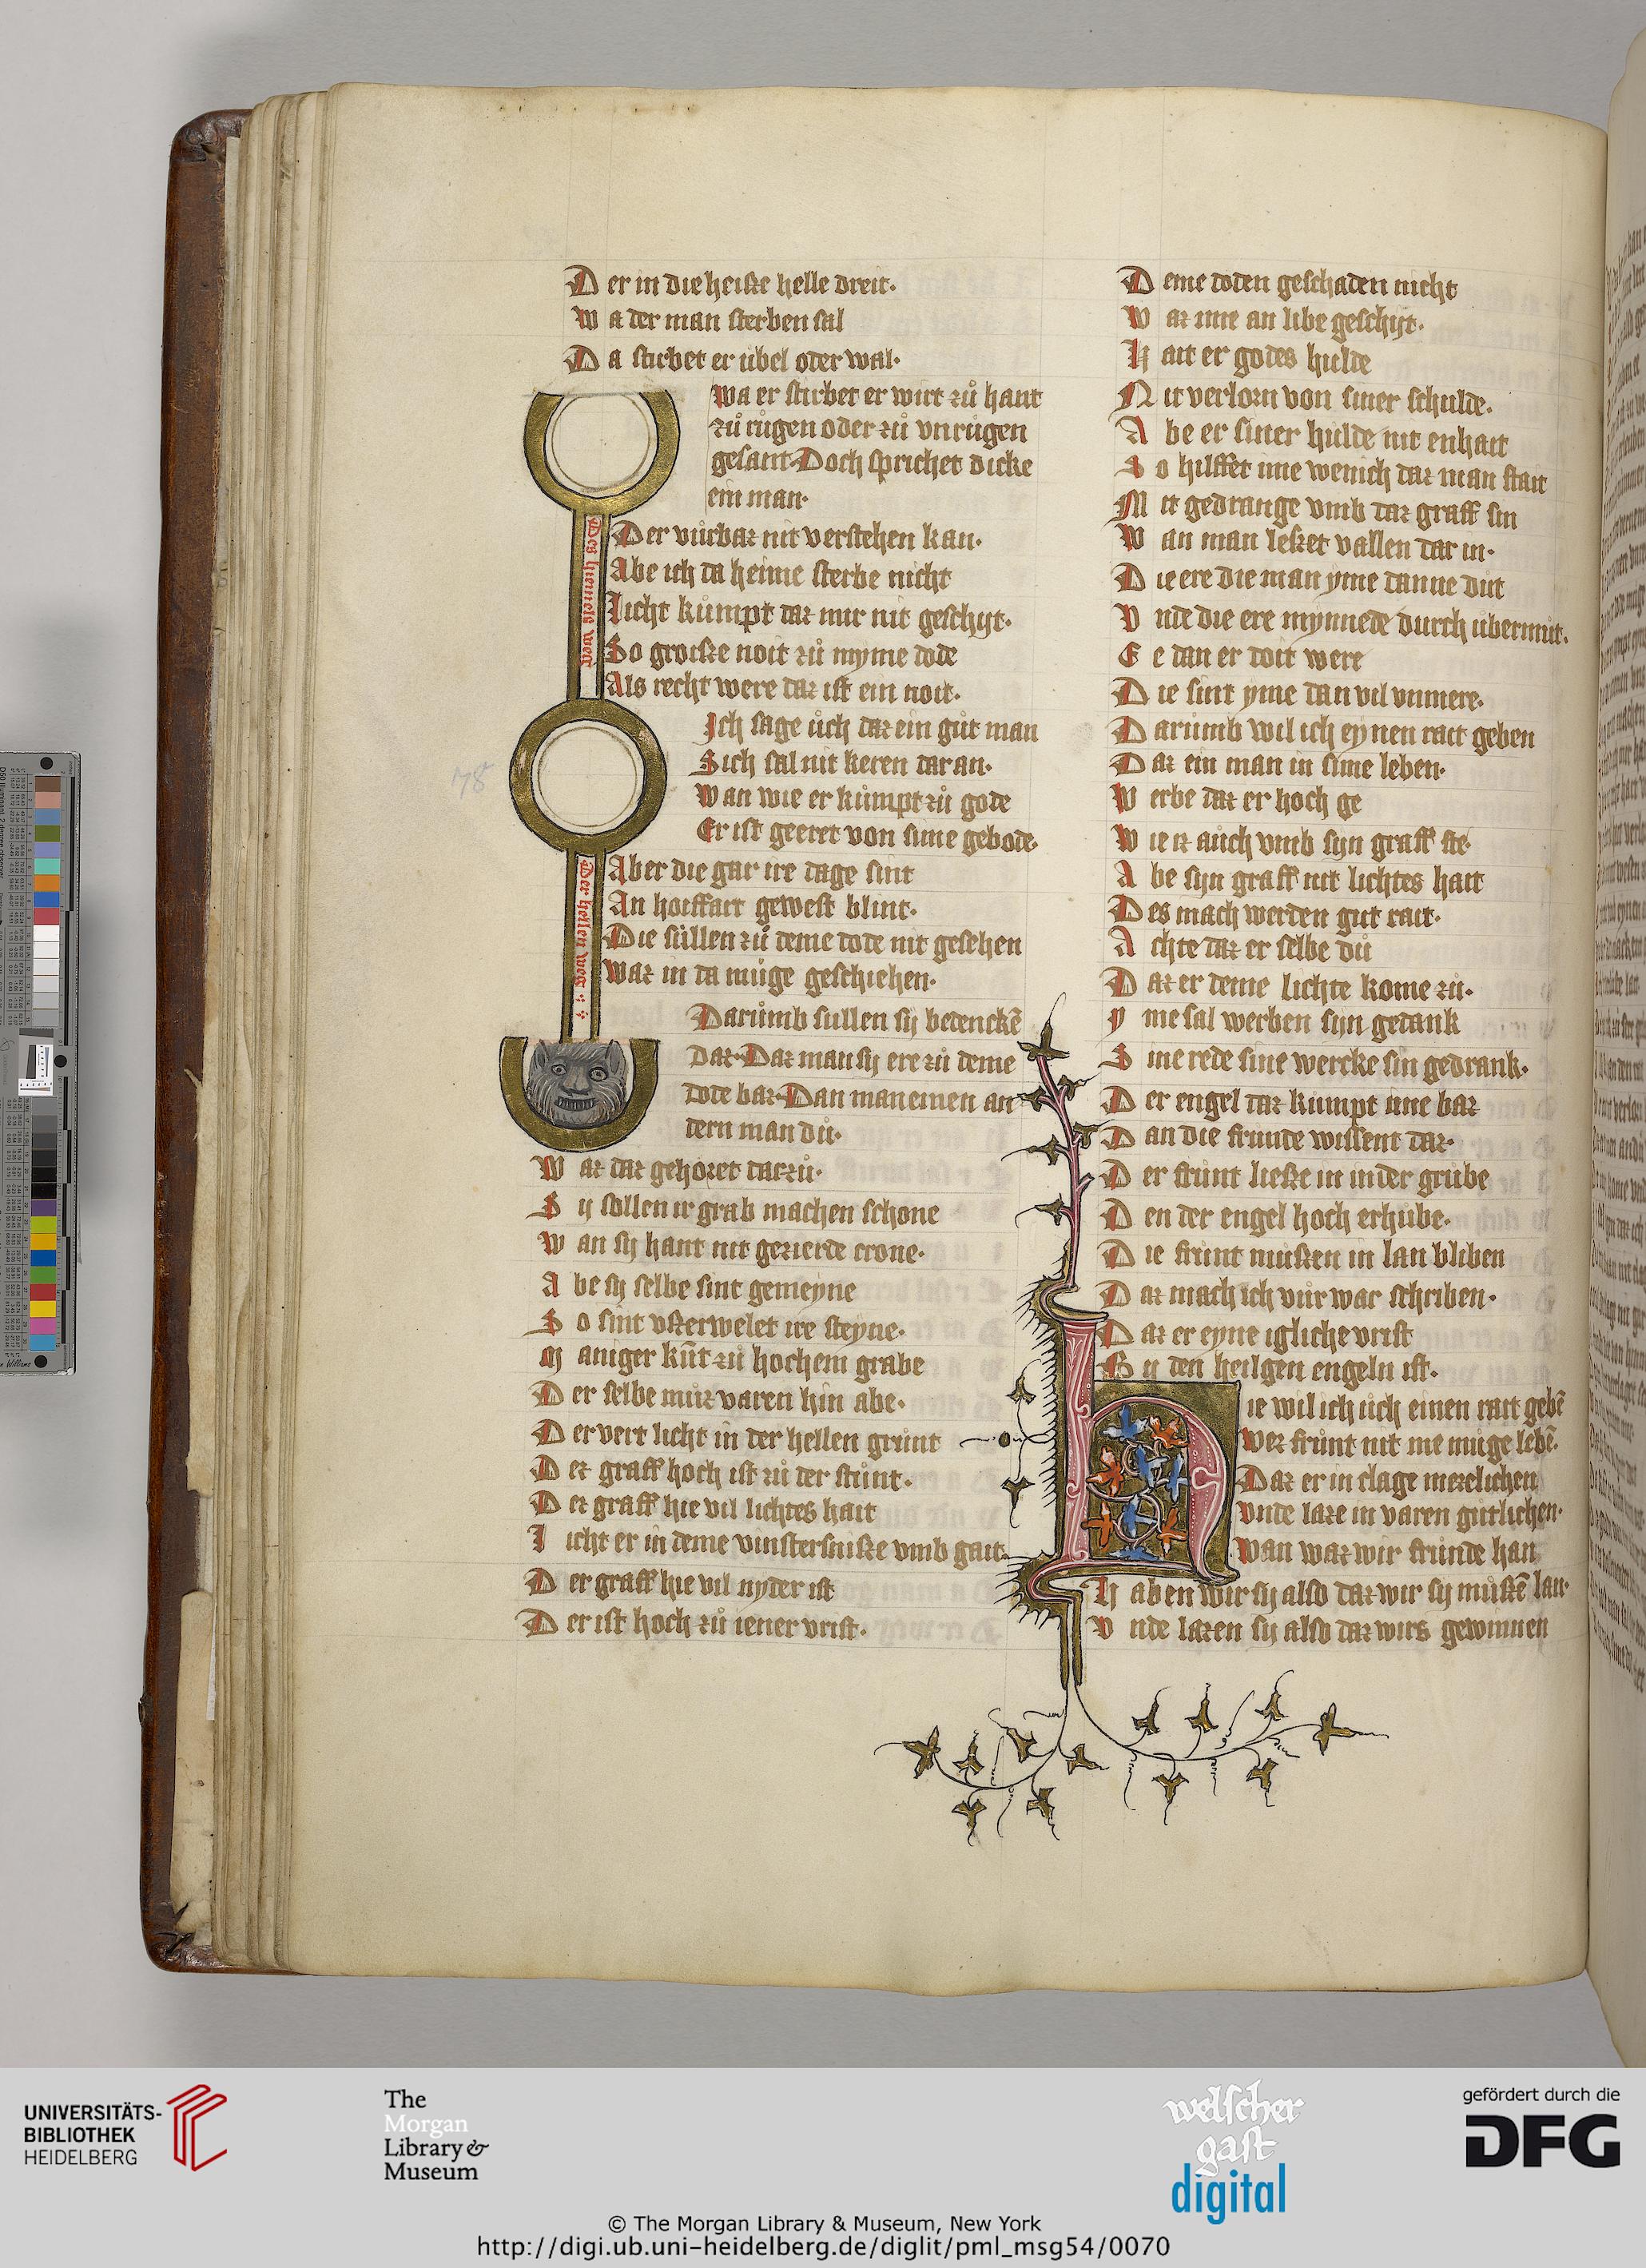 Der in die heiße helle dreit·
Wa der man sterben sal
Da stirbet er ubel oder wal·
Wa er stirbet er wirt zů hant
zů růgen oder zů vnrůgen
gesant· Doch sprichet dicke
ein man·
Der vurbaz nit verstehen kan·
Abe ich da heime sterbe nicht
Licht kůmpt daz mir nit geschyt·
So groiße noit zů myme dode
Als recht were daz ist ein noit·
Ich sage ůch daz ein gůt man
Sich sal nit keren dar an·
Wan wie er kůmpt zů gode
Er ist geeret von sime gebode·
Aber die gar ire dage sint
An hoiffart gewest blint·
Die sůllen zů deme dode nit gesehen
Waz in da můge geschiehen·
Darůmb sullen sy bedenckē
Daz· Daz man sy ere zů deme
dode baz· Dan man einen an
dern man dů·
Waz daz gehoret darzů·
Sy sollen ir grab machen schone
Wan sy hant nit gezierde crone·
Abe sy selbe sint gemeyne
So sint vßerwelet ire steyne·
Maniger kūt zů hochem grabe
Der selbe můz varen hin abe·
Der vert licht in der hellen grůnt
Dez graff hoch ist zů der stůnt·
Dez graff hie vil lichtes hait
Licht er in deme vinsternuße vmb gait·
Der graff hie vil nyder ist
Der ist hoch zů iener vrist·
Des hiemels weg
Der hellen weg
78
Deme doden geschaden nicht
Waz ime an libe geschyt·
Hait er godes hulde
Nit verlorn von siner schulde·
Abe er siner hulde nit enhait
So hilffet ime wenich daz man stait
Mit gedrange vmb daz graff sin
Wan man leßet vallen dar in·
Die ere die man yme danne dut
Vnde die ere mynnede durch ubermut·
Ee dan er doit were
Die sint yme dan vil vnmere·
Darůmb wil ich eynen rait geben
Daz ein man in sime leben·
Werbe daz er hoch ge
Wie iz auch vmb syn graff ste·
Abe syn graff nit lichtes hait
Des mach werden gut rait·
Achte daz er selbe dů
Daz er deme lichte kome zů·
Yme sal werben syn gedank
Sine rede sine wercke sin gedrank·
Der engel daz kumpt ime baz
Dan die frunde wissent daz·
Der frůnt ließe in in der grůbe
Den der engel hoch erhůbe·
Die frůnt můßen in lan bliben
Daz mach ich vůr war schriben·
Daz er eyne igliche vrist
By den heilgen engeln ist·
Hie wil ich ůch einen rait gebē
Wez frůnt nit me můge lebē·
Daz er in clage mezelichen
Vnde laze in varen gůtlichen·
Wan waz wir frůnde han
Haben wir sy also daz wir sy můßē lan·
Vnde lazen sy also daz wirs gewinnen
UNIVERSITÄTS-
BIBLIOTHEK
HEIDELBERG
The
Morgan
Library &
Museum
welscher
gast
digital
gefördert durch die
DFG
© The Morgan Library & Museum, New York
http://digi.ub.uni-heidelberg.de/diglit/pml_msg54/0070